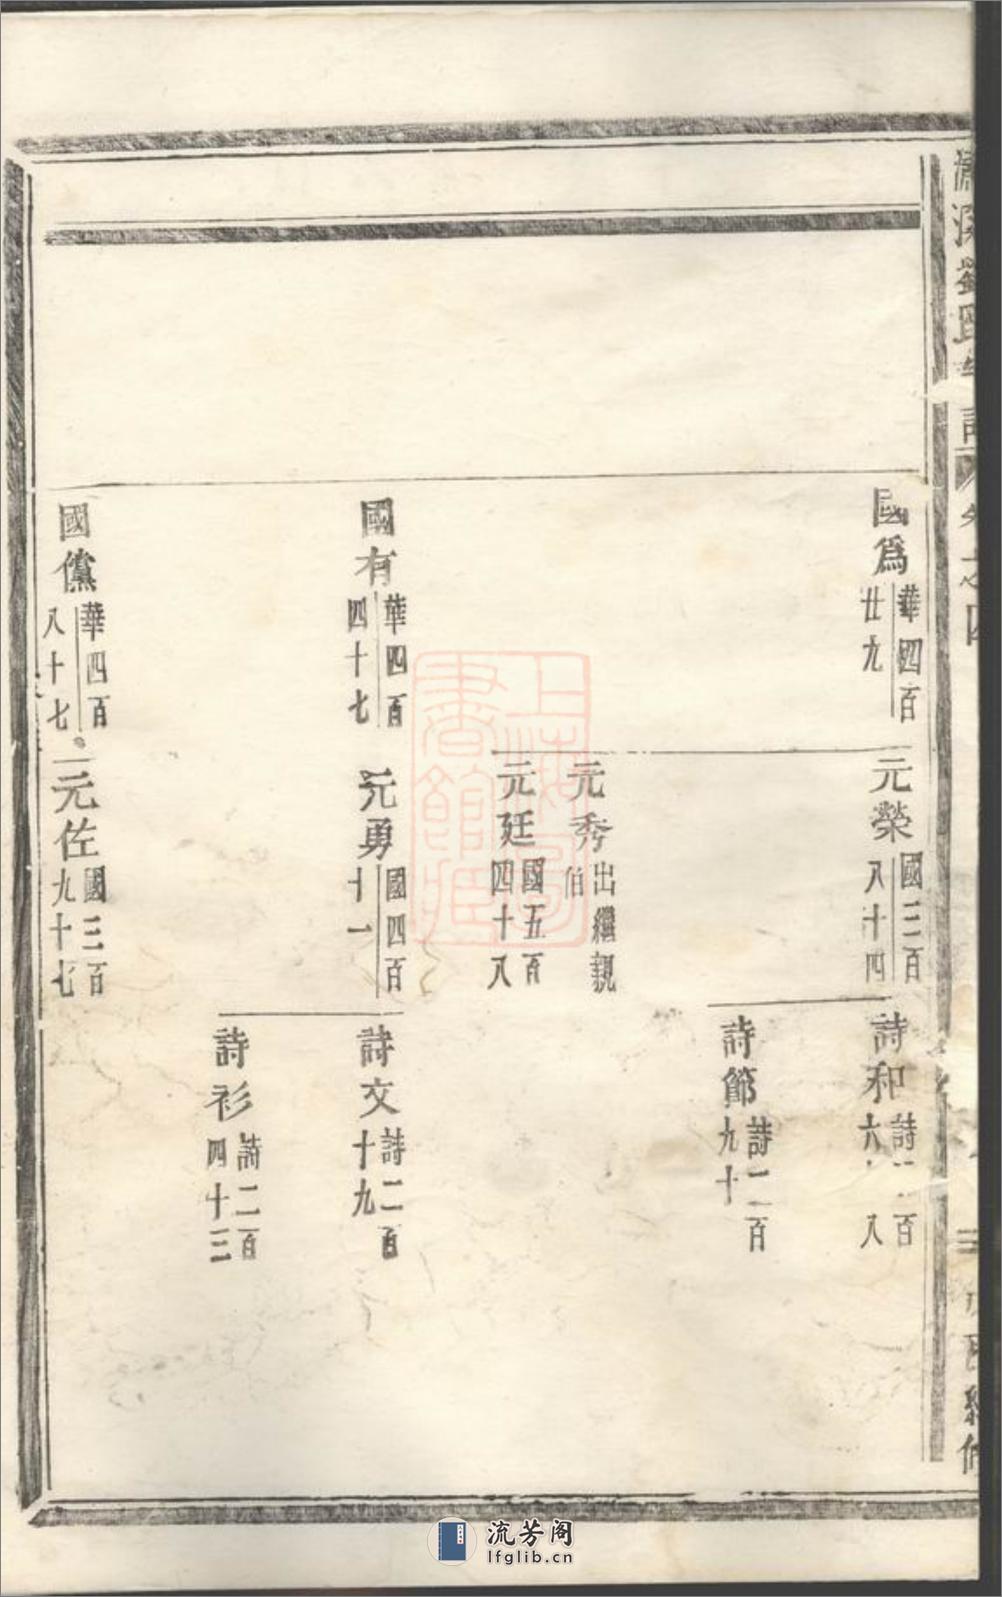 劉氏
卷之四
國為 華四百廿九
元榮 國三百八十四
詩和
詩節 詩二百九十
元秀 出繼親伯
元廷 國五百四十八
國有 華四百四十七
元勇 國四百十一
詩文 詩二百十九
詩衫 詩二百四十三
國儻 華四百八十七
元佐 國三百九十七
上海圖書館藏
流芳阁
lfglib.cn